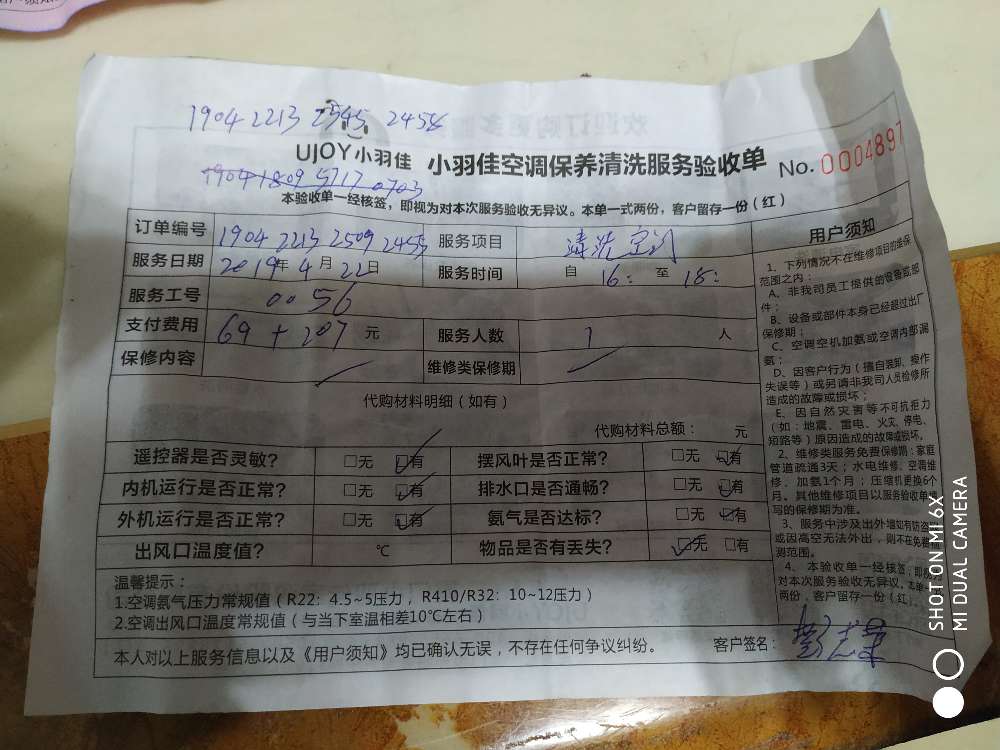 1904 2213 2545 2458
UJOY小羽佳 小羽佳空调保养清洗服务验收单 No. 0004897
1904 1809 5717 0703
本验收单一经核签，即视为对本次服务验收无异议。本单一式两份，客户留存一份（红）
订单编号 1904 2213 2509 2455 服务项目 清洗空调
服务日期 2019年 4月 22日 服务时间 自 16: 至 18:
服务工号 0056
支付费用 69 + 207 元 服务人数 1 人
保修内容 维修类保修期
代购材料明细（如有）
代购材料总额： 元
遥控器是否灵敏? □无 □有 摆风叶是否正常? □无 □有
内机运行是否正常? □无 □有 排水口是否通畅? □无 □有
外机运行是否正常? □无 □有 氨气是否达标? □无 □有
出风口温度值? ℃ 物品是否有丢失? □无 □有
温馨提示：
1.空调氨气压力常规值（R22：4.5~5压力，R410/R32：10~12压力）
2.空调出风口温度常规值（与当下室温相差10℃左右）
本人对以上服务信息以及《用户须知》均已确认无误，不存在任何争议纠纷。 客户签名：
用户须知
1、下列情况不在维修项目的维保
范围之内：
A、非我司员工提供的设备或部
件；
B、设备或部件本身已经超过出厂
保修期；
C、空调空机加氨或空调内部漏
氨；
D、因客户行为（擅自装卸、操作
失误等）或另请非我司人员检修所
造成的故障或损坏；
E、因自然灾害等不可抗拒力
（如：地震、雷电、火灾、停电、
短路等）原因造成的故障或损坏。
2、维修类服务免费保修期：家庭
管道疏通3天；水电维修、空调维
修、加氨1个月；压缩机更换6个
月。其他维修项目以服务验收单填
写的保修期为准。
3、服务中涉及出外墙如有防盗
或因高空无法外出，则不在免费检
测范围。
4、本验收单一经核签，即视为
对本次服务验收无异议。本单一式
两份，客户留存一份（红）。
SHOT ON MI 6X
MI DUAL CAMERA